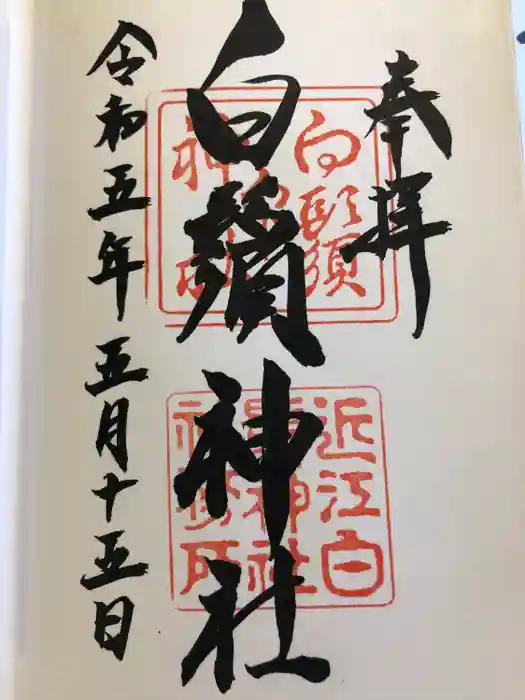 奉拝
白鬚神社
令和五年五月十五日
近江白
鬚神社
社務所